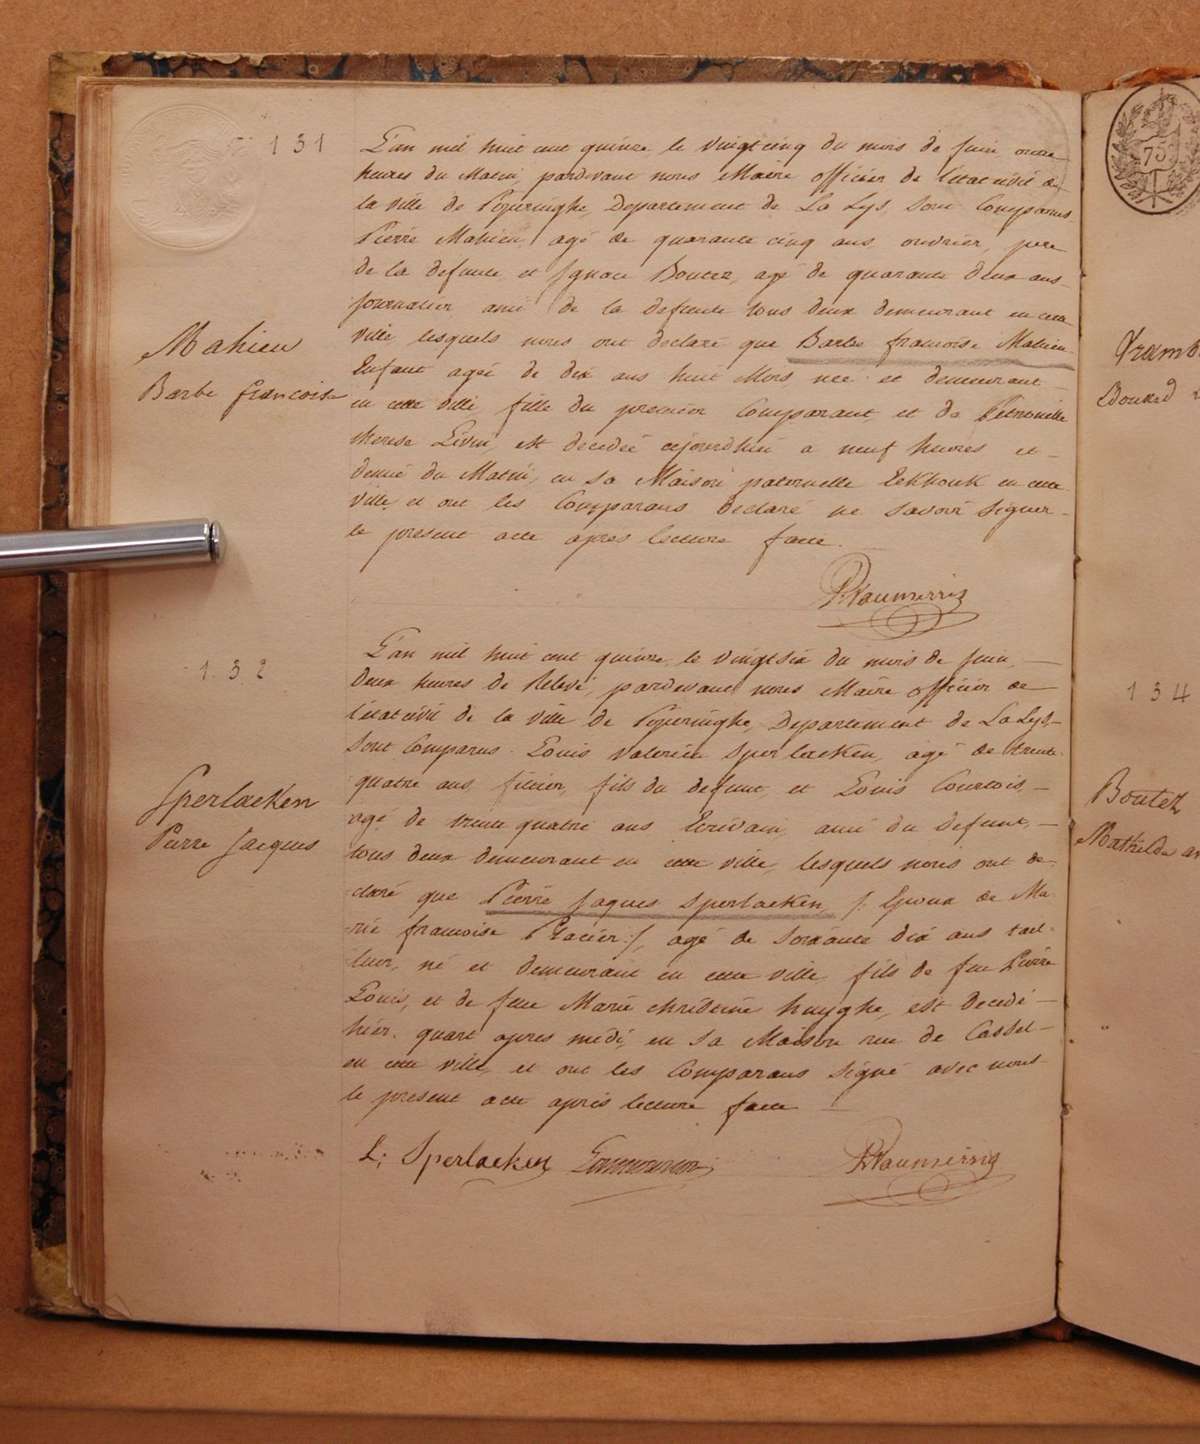 131
L'an mil huit cent quinze le vingt cinq du mois de Juin onze
heures du Matin pardevant nous Maire officier de l'etat civil de
la ville de Poperinghe, Departement de La Lys, sont Comparus
Pierre Mahieu, agé de quarante cinq ans, ouvrier, pere
de la defunte et Ignace Boutez, agé de quarante deux ans
journalier ami de la defunte tous deux demeurant en cette
ville lesquels nous ont declaré que Barbe francoise Mahieu
Enfant agée de dix ans huit Mois, née et demeurant
en cette ville fille du premier Comparant, et de Petronille
therese est decedée cejourdhui a neuf heures et
demie du Matin, en sa Maison paternelle Eekhouk en cette
ville, et ont les Comparans declaré ne savoir signer
le present acte apres lecture faite.
Mahieu
Barbe francoise
132
L'an mil huit cent quinze le vingt six du mois de Juin,
deux heures de Relevé, pardevant nous Maire officier de
l'etat civil de la ville de Poperinghe, Departement de La Lys
sont Comparus Louis Valerien Sperlaeken, agé de trente
quatre ans, fils du defunt, et Louis Courtois,
agé de trente quatre ans Ecrivain, ami du Defunt,
tous deux demeurant en cette ville, lesquels nous ont de-
claré que Pierre Jaques Sperlaeken, /: Epoux de Ma-
rie francoise :/, agé de soixante dix ans tail-
leur, né et demeurant en cette ville fils de feu Pierre
Louis, et de feue Marie christine huyghe, est decedé
hier quart apres medi, en sa Maison rue de Cassel
en cette ville, et ont les Comparans signé avec nous
le present acte après lecture faite
Sperlaeken
Pierre Jacques
L: Sperlaeken
75
134
Boutez
Mathilde